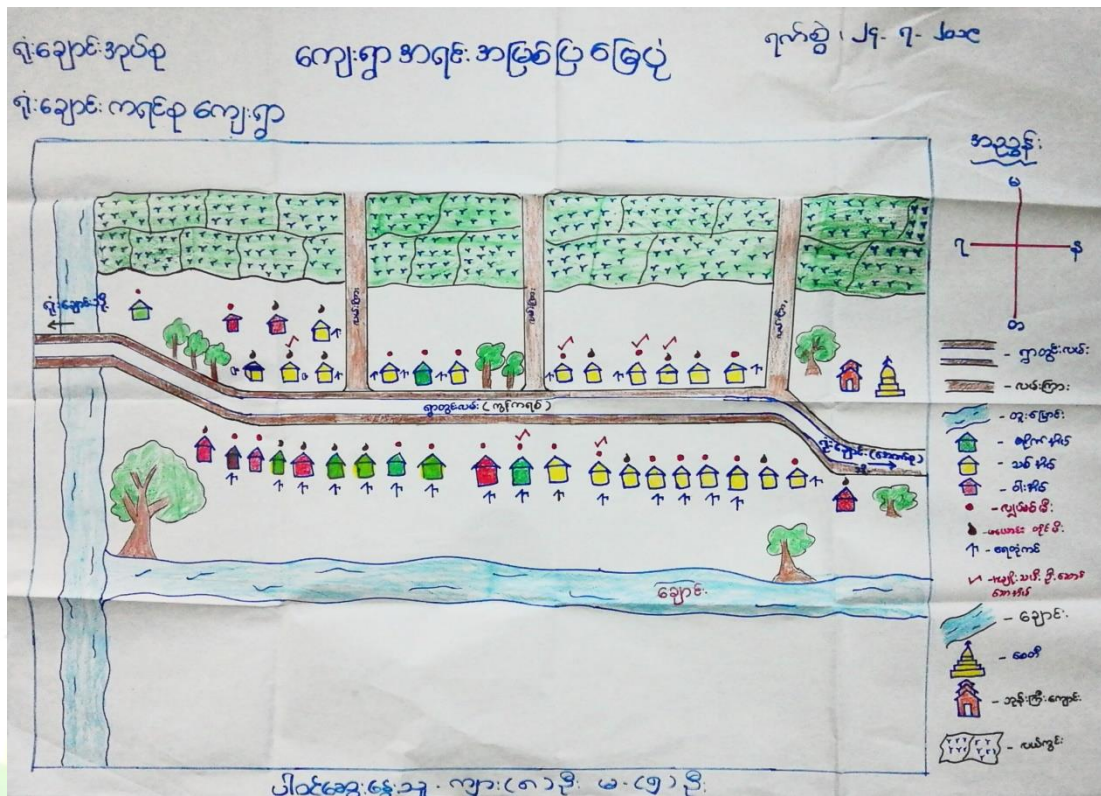 ရုံးချောင်းအုပ်စု
ကျေးရွာ အရင်းအမြစ်ပြ မြေပုံ
ရုံးချောင်း ကရင်စု ကျေးရွာ
အညွှန်း
မ
န
တ
ရုံးချောင်းသို့
လမ်းကြား
လမ်းကြား
လမ်းကြား
ရွာတွင်းလမ်း (ကွန်ကရစ်)
ချောင်း
- ရွာတွင်းလမ်း
- လမ်းကြား
- တူးမြောင်း
- တိုက်အိမ်
- သစ်အိမ်
- ဝါးအိမ်
- လျှပ်စစ်မီး
- ဖယောင်းတိုင်မီး
- ရေတုံကင်
- အမျိုးသမီးဦးဆောင်
သောအိမ်
- ချောင်း
- စေတီ
- ဘုန်းကြီးကျောင်း
- လယ်ကွင်း
ပါဝင်ဆွေးနွေးသူ - ကျား (၈) ဦး မ - (၅) ဦး